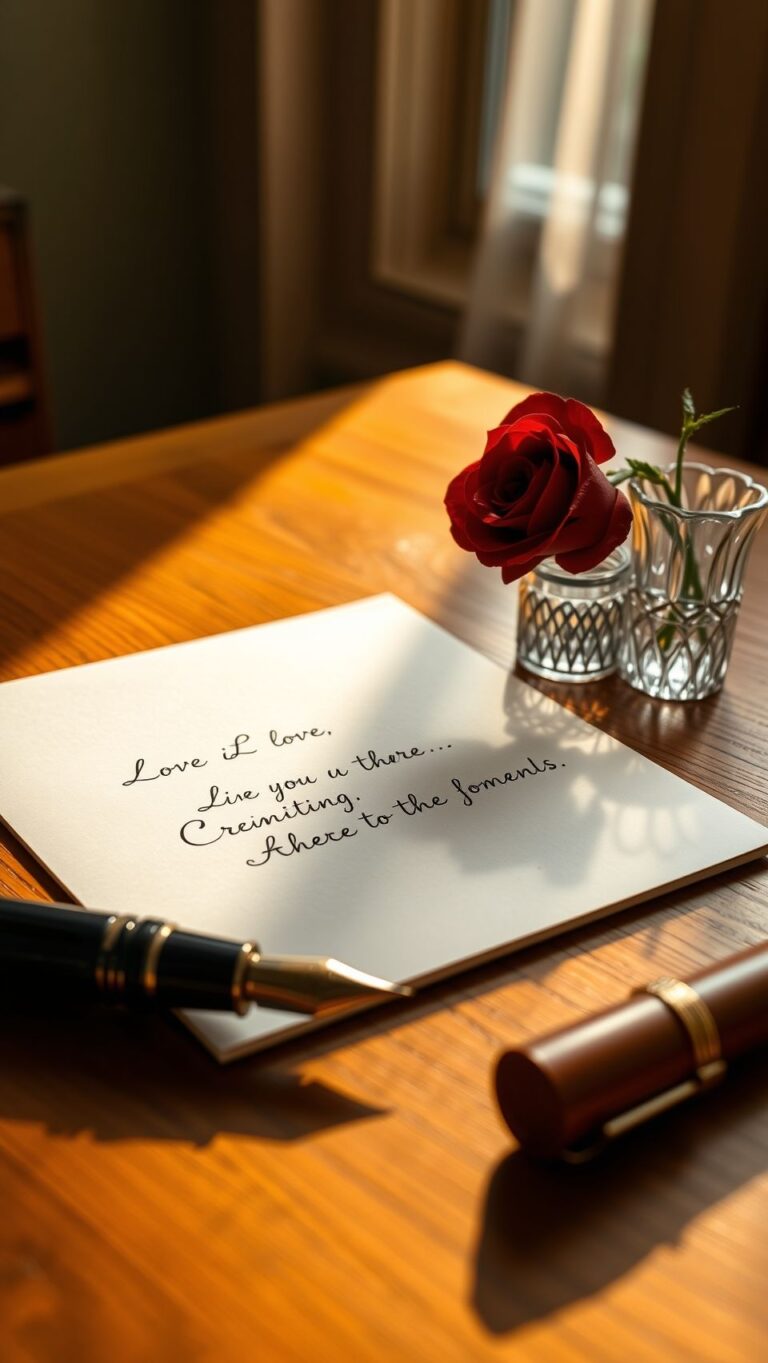 Love iL love,
Live you u there...
Creiniting.
Ahere to the foments.